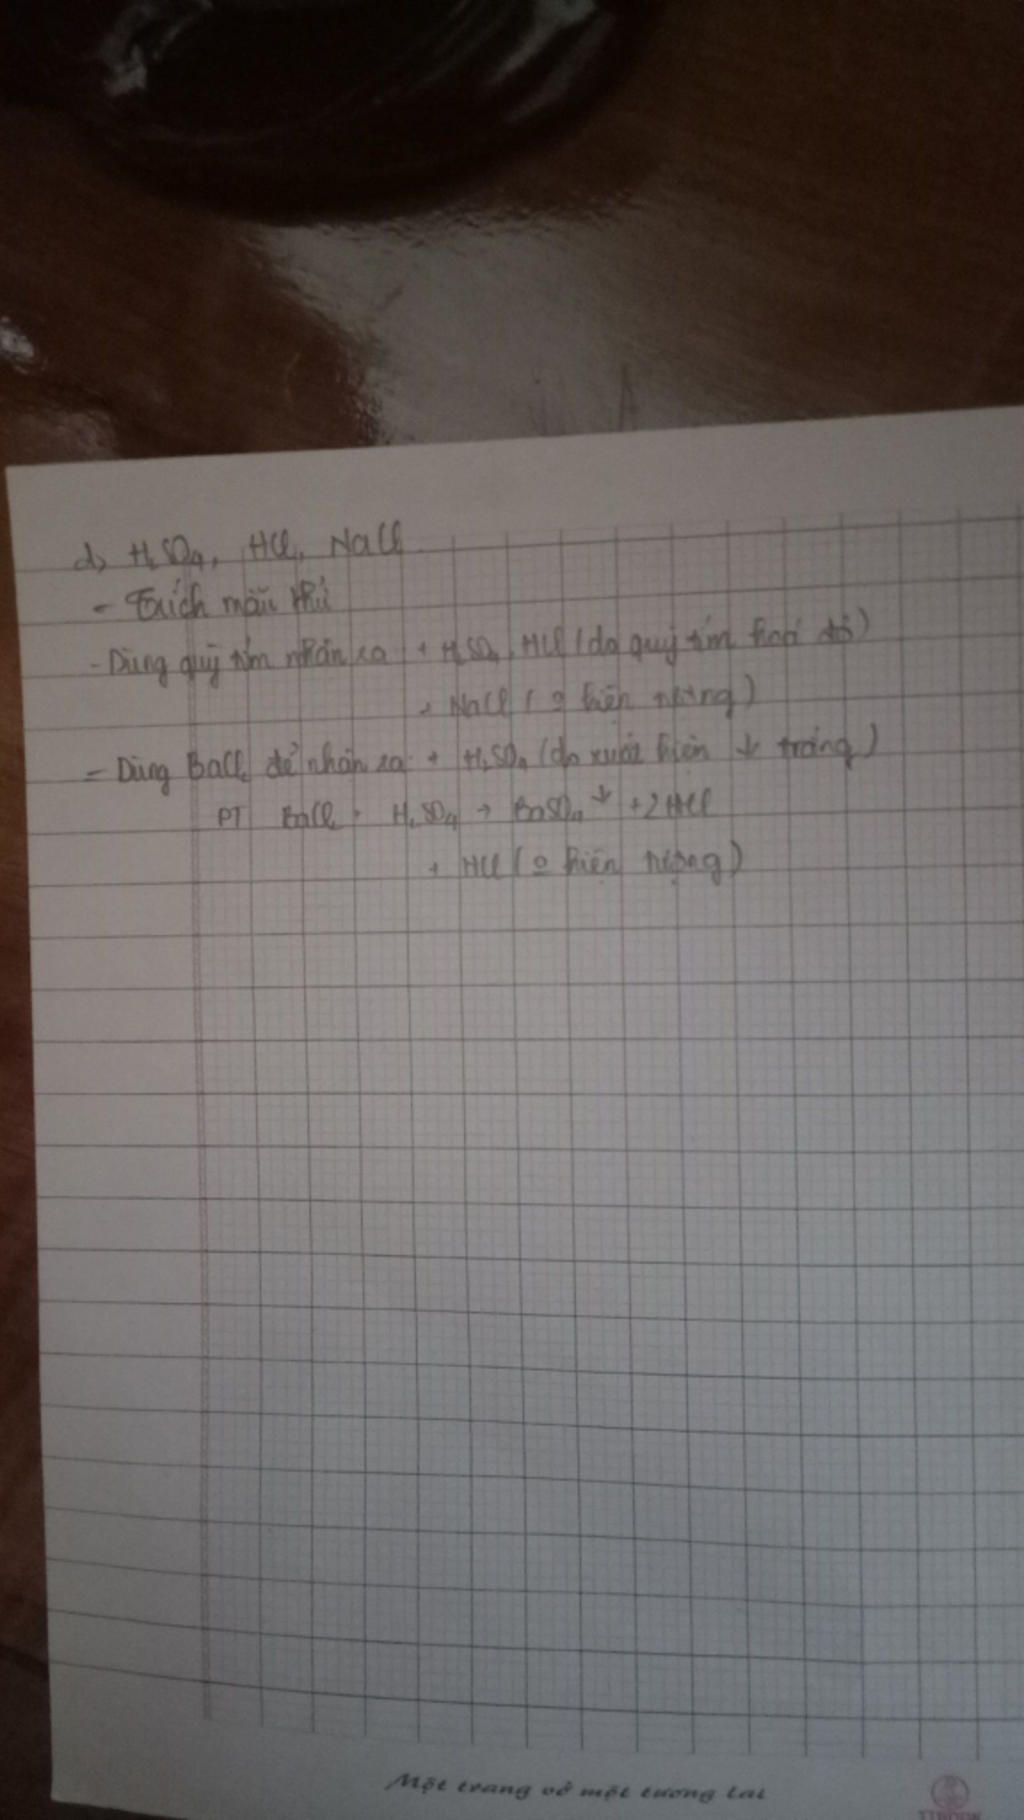 d, H₂SO₄, HCl, NaCl
- Trích mẫu thử
- Dùng quỳ tím nhận ra + H₂SO₄, HCl (do quỳ tím hoá đỏ)
+ NaCl (o hiện tượng)
- Dùng BaCl₂ để nhận ra + H₂SO₄ (do xuất hiện ↓ trắng)
PT BaCl₂ + H₂SO₄ → BaSO₄↓ + 2HCl
+ HCl (o hiện tượng)
Một trang vở một tương lai